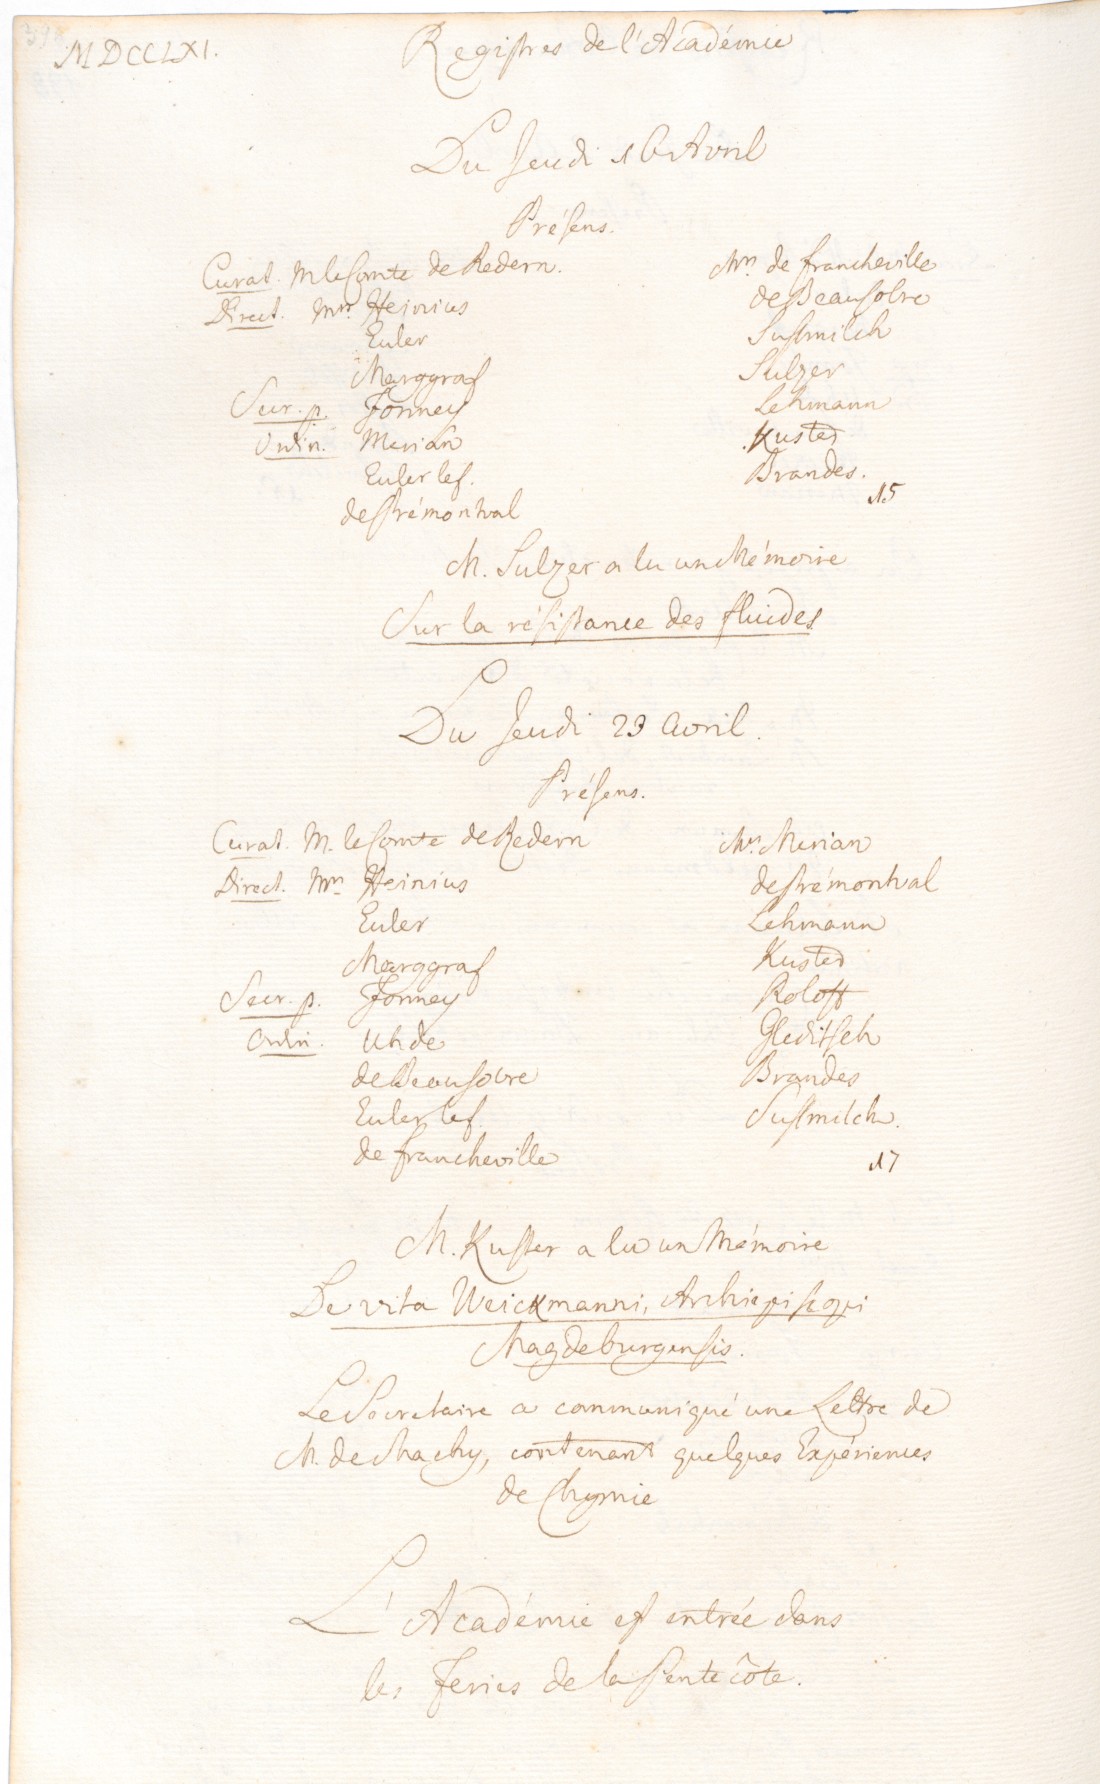 MDCCLXI.
Registres de l'Académie
Du Jeudi 16 Avril
Présens.
Curat. M le Comte de Redern.
Direct. Mrs. Heinius
Euler
Marggraf
Secr. p. Formey
Ordin. Merian
Euler le f.
de Prémontval
Mrs. de Francheville
de Beausobre
Susmilch
Sulzer
Lehmann
Kuster
Brandes.
15
M. Sulzer a lu un Mémoire
Sur la résistance des fluides
Du Jeudi 23 Avril.
Présens.
Curat. M. le Comte de Redern
Direct. Mrs Heinius
Euler
Marggraf
Secr. p. Formey
Ordin. Uhde
de Beausobre
Euler le f.
de Francheville
Mrs. Merian
de Prémontval
Lehmann
Kuster
Roloff
Gleditsch
Brandes
Susmilch.
17
M. Kuster a lu un Mémoire
De vita Weickmanni, Archiepiscopi
Magdeburgensis.
Le Secretaire a communiqué une Lettre de
M. de Machy, contenant quelques Expériences
de Chymie
L'Académie est entrée dans
les Feries de la Pentecôte.